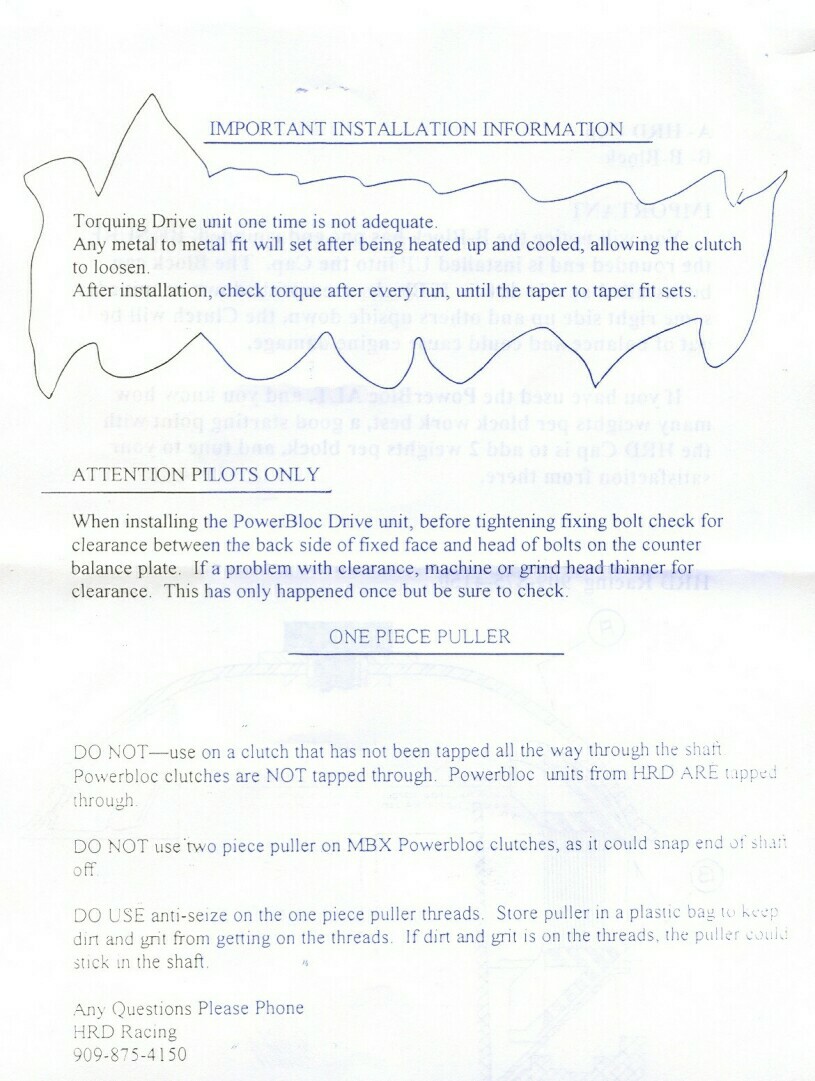 IMPORTANT INSTALLATION INFORMATION
Torquing Drive unit one time is not adequate.
Any metal to metal fit will set after being heated up and cooled, allowing the clutch
to loosen.
After installation, check torque after every run, until the taper to taper fit sets.
ATTENTION PILOTS ONLY
When installing the PowerBloc Drive unit, before tightening fixing bolt check for
clearance between the back side of fixed face and head of bolts on the counter
balance plate. If a problem with clearance, machine or grind head thinner for
clearance. This has only happened once but be sure to check.
ONE PIECE PULLER
DO NOT—use on a clutch that has not been tapped all the way through the shaft.
Powerbloc clutches are NOT tapped through. Powerbloc units from HRD ARE tapped
through.
DO NOT use two piece puller on MBX Powerbloc clutches, as it could snap end of shaft
off.
DO USE anti-seize on the one piece puller threads. Store puller in a plastic bag to keep
dirt and grit from getting on the threads. If dirt and grit is on the threads, the puller could
stick in the shaft.
Any Questions Please Phone
HRD Racing
909-875-4150